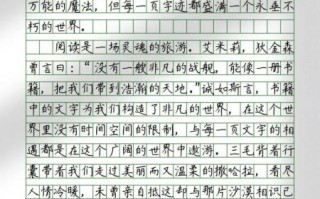 万能的魔法，但每一页字迹都盛满一个永垂不
朽的世界。
阅读是一场灵魂的旅游。艾米莉，狄金森
曾言曰：“没有一艘非凡的战舰，能像一册书
籍，把我们带到浩瀚的天地。”诚如斯言，书籍
中的文字为我们构造了非凡的世界，在这个世
界里没有时间空间的限制，与每一页文字的相
遇都是在这个广阔的世界中遨游。三毛背着行
囊带着我们走过美丽而又温柔的撒哈拉，看尽
人情冷暖，未曾亲自抵达却与那片沙漠相识已